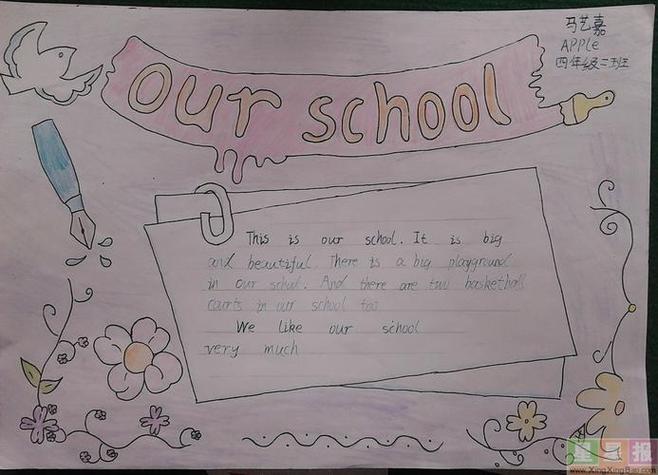 马艺嘉
APPle
四年级三班
our school
This is our school. It is big
and beautiful. There is a big playground
in our school. And there are two basketball
courts in our school too.
We like our school
very much
星星报
www.XingXingBao.com